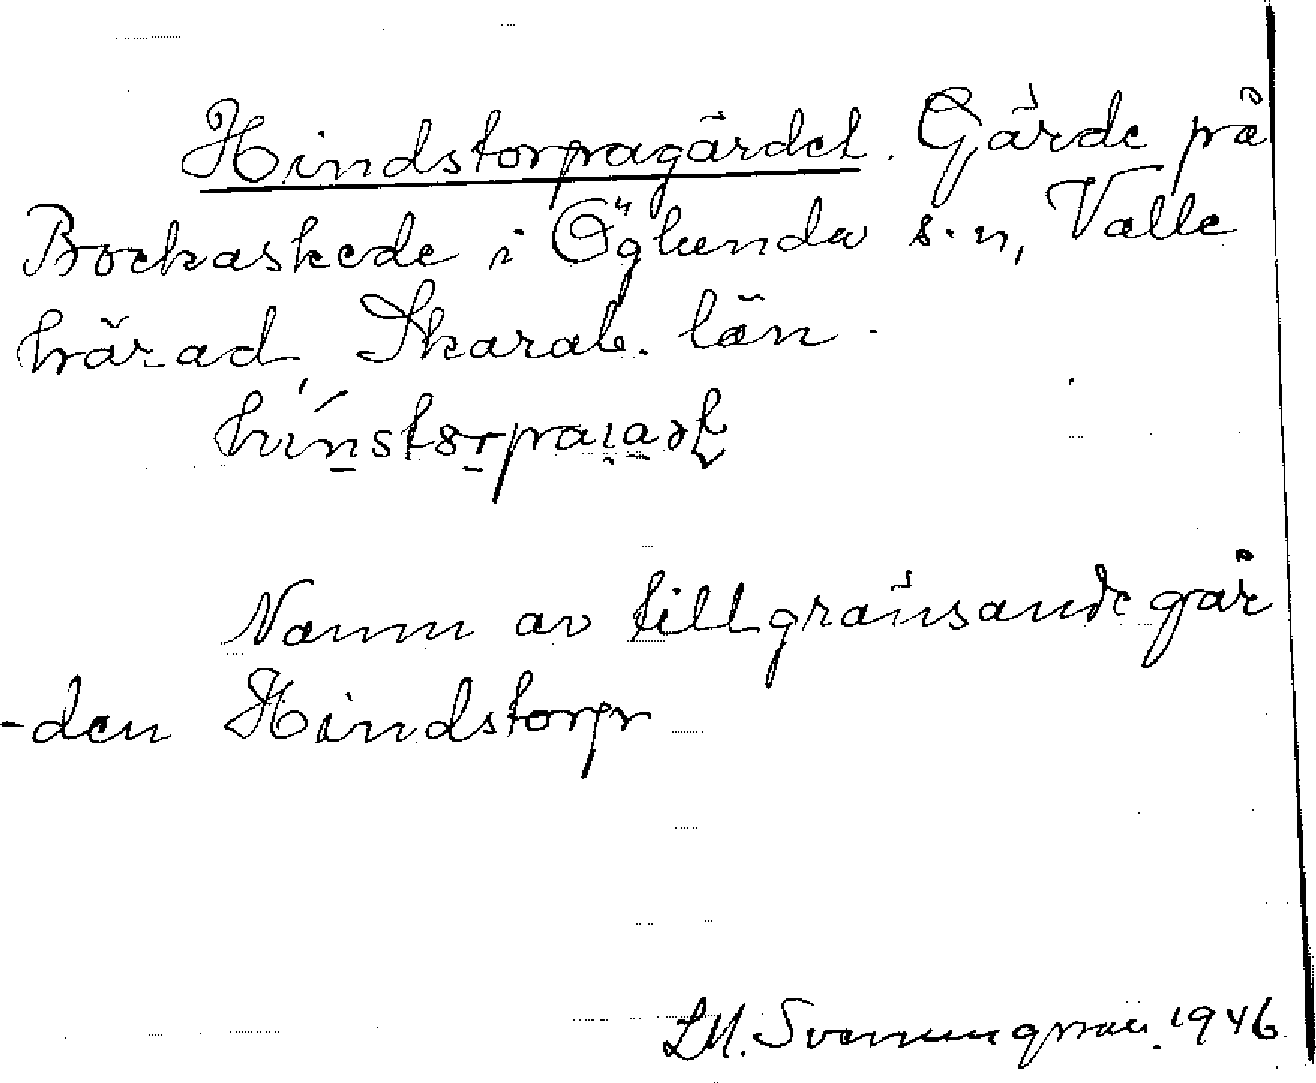 Hindstorpagärdet. Gärde på
Bockaskede i Öglunda s.n, Valle
härad, Skarab. län.
Namn av tillgränsande går
-den Hindstorp
LM. Svenungsson. 1946